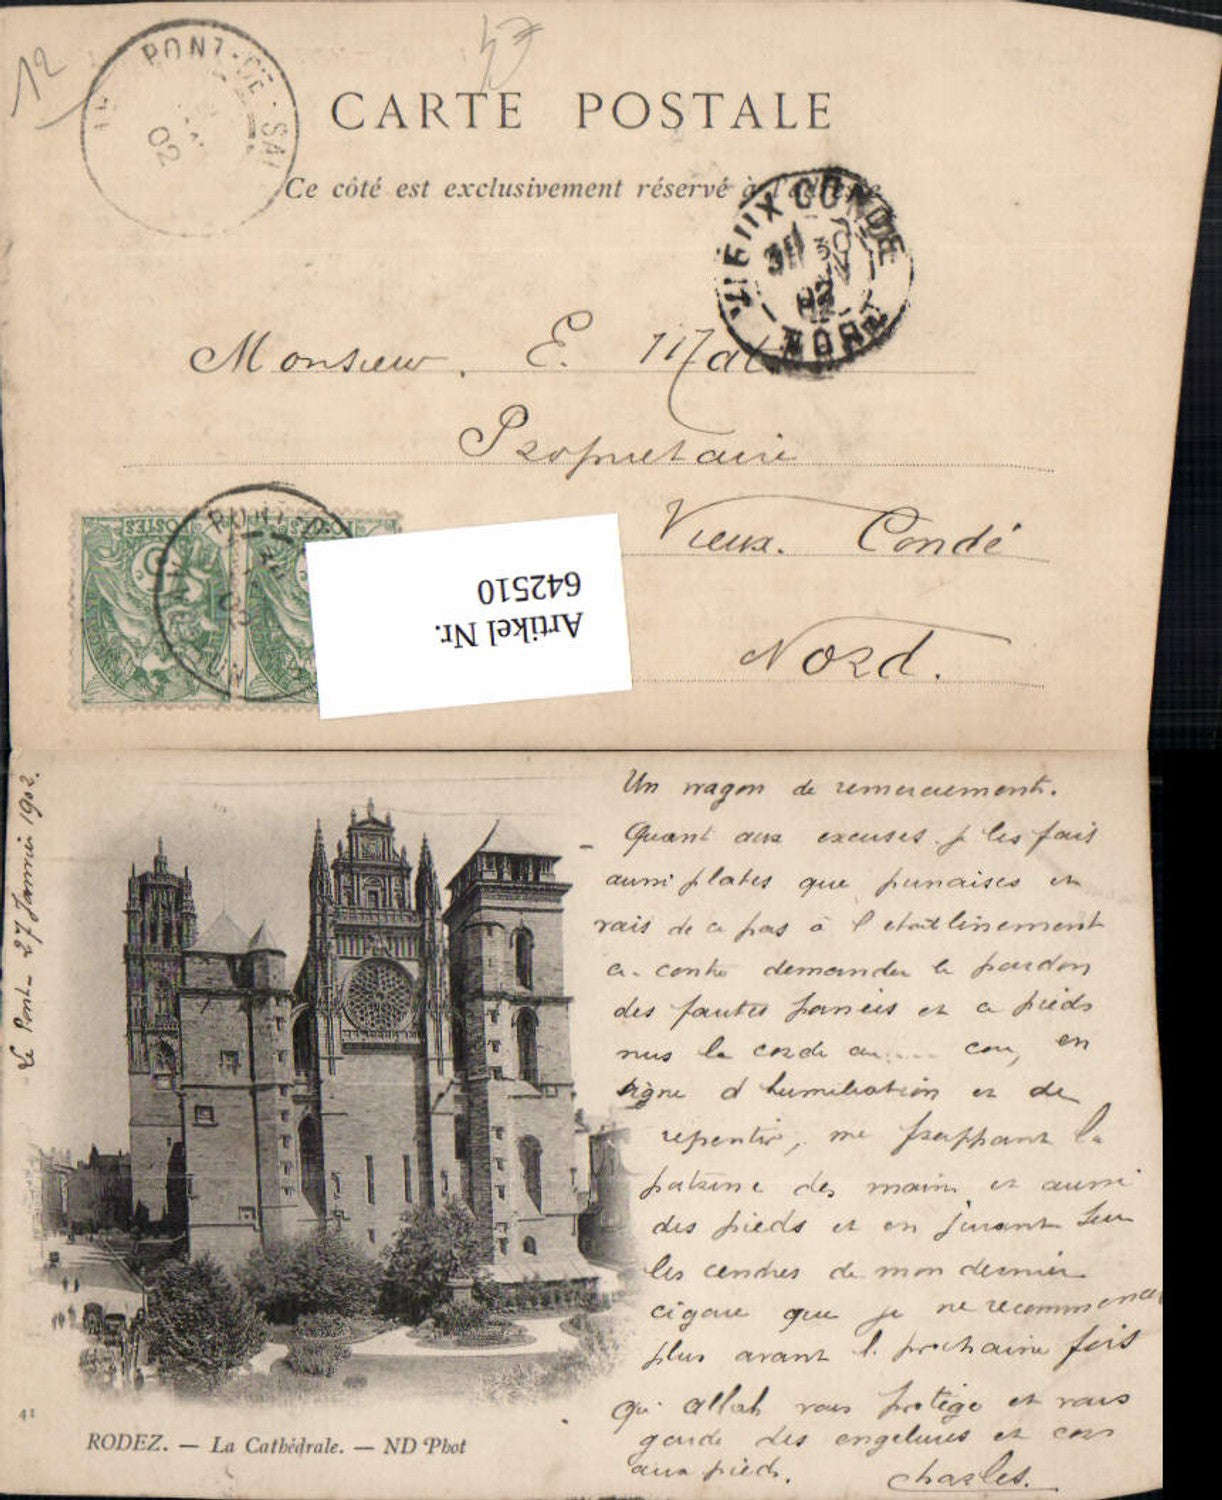 12
PONT-DE-SAL
02
CARTE POSTALE
Ce côté est exclusivement réservé à l'adresse
VIEUX CONDE
NORD
Monsieur. E. Mat
Propriétaire
Vieux. Condé
Nord.
POSTES
POSTES
Artikel Nr.
642510
Le Pont - 27 Janvier 1902.
Un wagon de remerciements.
Quant aux excuses je les fais
aussi plates que punaises et
vais de ce pas à l'
demander le pardon
des fautes passées et à pieds
nus la corde au..... cou, en
signe d'humiliation et de
repentir, me frappant la
poitrine des mains et aussi
des pieds et en jurant sur
les cendres de mon dernier
cigare que je ne recommencerai
plus avant la prochaine fois
Qu'Allah vous protège et vous
garde des engelures et cors
aux pieds.
Charles.
41
RODEZ. — La Cathédrale. — ND Phot